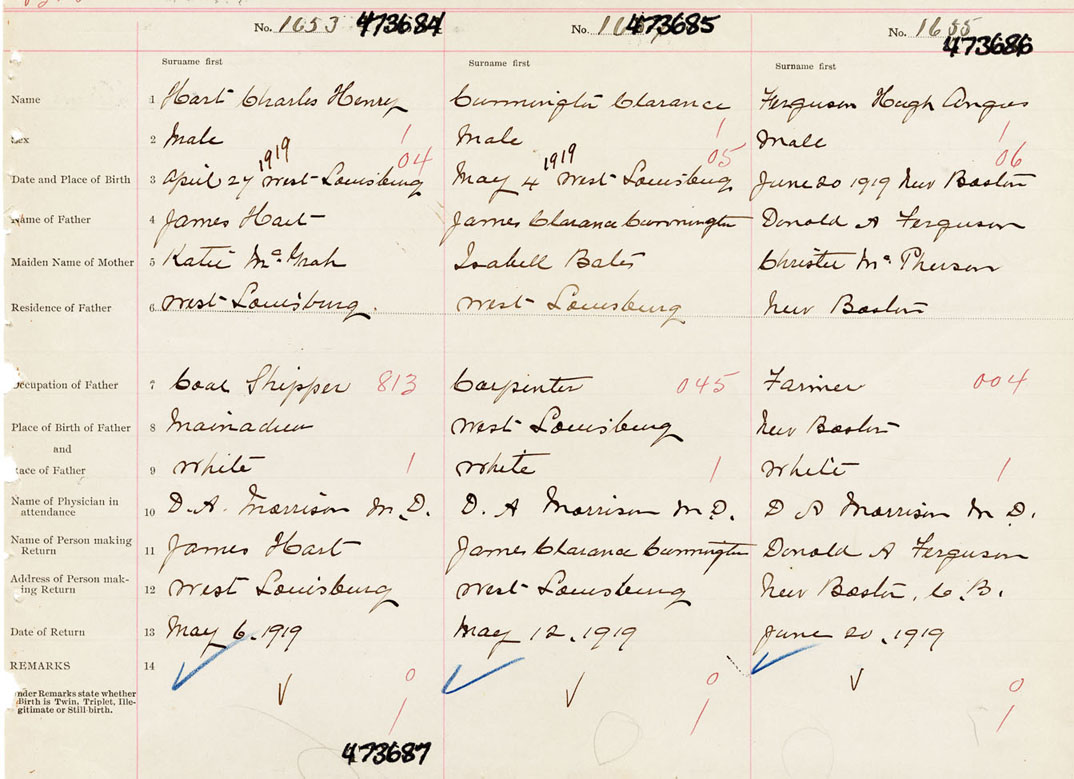 No. 1653 473684 No. 473685 No. 1655 473686
Surname first Surname first Surname first
Name 1 Hart Charles Henry Cunnington Clarance Ferguson Hugh Angus
Sex 2 Male 1 Male 1 Male 1
1919 04 1919 05 06
Date and Place of Birth 3 April 27 West Louisburg May 4 West Louisburg June 20 1919 New Boston
Name of Father 4 James Hart James Clarance Cunnington Donald A Ferguson
Maiden Name of Mother 5 Katie McGrah Isabell Bates Christie Mc Pherson
Residence of Father 6 West Louisburg. West Louisburg New Boston
Occupation of Father 7 Coal Shipper 813 Carpenter 045 Farmer 004
Place of Birth of Father 8 Mainadieu West Louisburg New Boston
and
Race of Father 9 White 1 White 1 White 1
Name of Physician in
attendance 10 D. A. Morrison M.D. D. A Morrison M.D. D A Morrison M D.
Name of Person making
Return 11 James Hart James Clarance Cunnington Donald A Ferguson
Address of Person mak-
ing Return 12 West Louisburg West Louisburg New Boston, C.B.
Date of Return 13 May 6. 1919 May 12, 1919 June 20, 1919
REMARKS 14
0 0 0
Under Remarks state whether
Birth is Twin, Triplet, Ille-
gitimate or Still-birth.
1 1 1
473687